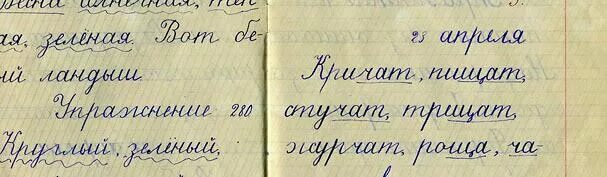 Весна солнечная, теп-
ая, зелёная. Вот бе-
ый ландыш.
Упражнение 280
Круглый, зелёный,
23 апреля
Кричат, пищат,
стучат, трещат,
журчат, роща, ча-